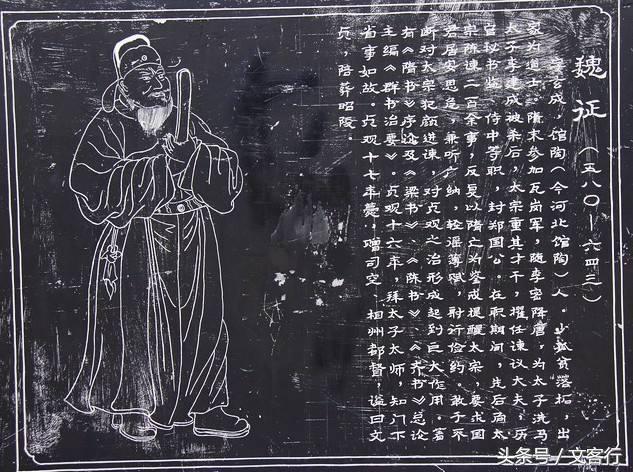 魏征（五八〇—六四三）
字玄成，馆陶（今河北馆陶）人。少孤贫落拓，出
家为道士。隋末参加瓦岗军，随李密降唐，为太子洗马
太子李建成被杀后，太宗重其才干，擢任谏议大夫，历
官秘书监、侍中等职，封郑国公。在职期间，先后向太
宗陈谏二百余事，反复以隋亡为鉴戒提醒太宗，要求国
君居安思危，兼听广纳，轻徭薄赋，躬行俭约，敢于不
断对太宗犯颜进谏，对贞观之治形成起到巨大作用。著
有《隋书》序论及《梁书》、《陈书》、《齐书》总论
主编《群书治要》。贞观十六年，拜太子太师，知门下
省事如故。贞观十七年薨，赠司空、相州都督，谥曰文
贞，陪葬昭陵。
头条号／文客行